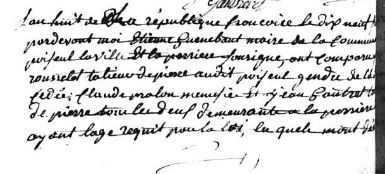 L'an huit de la république francoise le dix neuf
pardevant moi Etienne Guenebaut maire de la commun
poiseul la ville et la perriere sousigné, ont comparu
rousselot tatieu de pierre audit poiseul gendre de
Claude malon menusie et jean
de pierre tous les deux demeurants a la perriere
ayant lage requit pour la loi, la quele mont